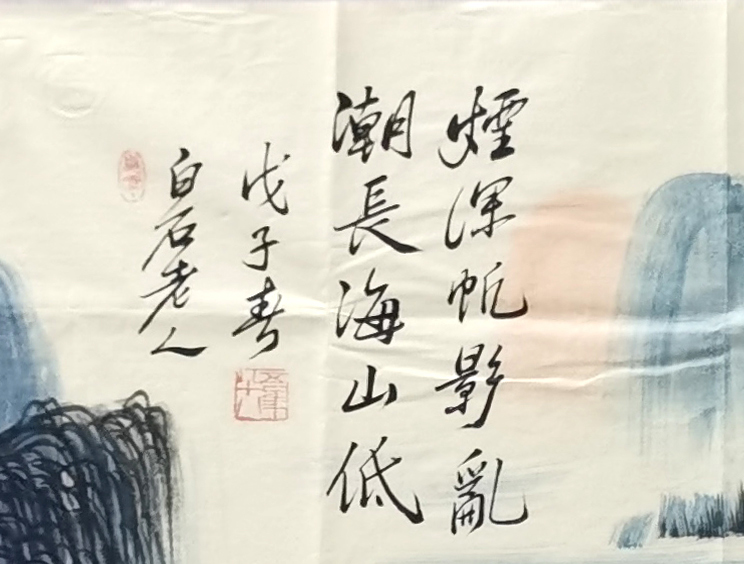 煙深帆影亂
潮長海山低
戊子春
白石老人